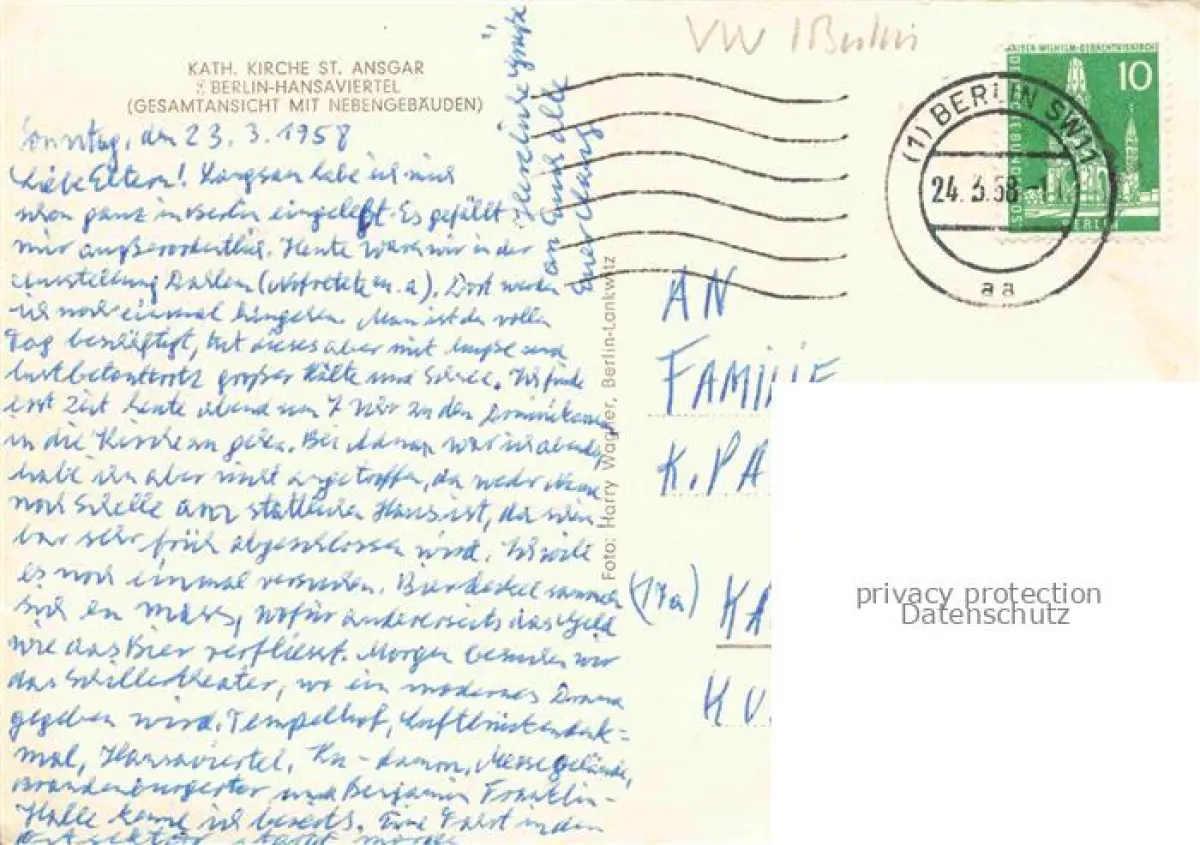 VW 1 Berlin
KATH. KIRCHE ST. ANSGAR
BERLIN-HANSAVIERTEL
(GESAMTANSICHT MIT NEBENGEBÄUDEN)
Sonntag, den 23.3.1958
Liebe Eltern! Langsam habe ich mich
schon ganz in Berlin eingelebt. Es gefällt
mir außerordentlich. Heute waren wir in der
Ausstellung Dahlem (Nofretete u. a.). Dort werden
ich noch einmal hingehen. Man ist den vollen
Tag beschäftigt, tut dieses aber mit Muße und
lustbetont trotz großer Kälte und Schnee. Ich finde
erst Zeit heute abend um 7 Uhr zu den Dominikanern
in die Kirche zu gehen. Bei war ich abends,
habe ihn aber nicht angetroffen, da weder Name
noch Schelle am stattlichen Haus ist, da schein-
bar sehr früh abgeschlossen wird. Ich will
es noch einmal versuchen. Bierdeckel sammeln
sich en mass, wofür andererseits das Geld
wie das Bier verfliest. Morgen besuchen wir
das Schillertheater, wo ein modernes Drama
gegeben wird. Tempelhof, Luftbrückendenk=
mal, Hansaviertel, Ku-damm, Messegelände,
Brandenburgertor und Benjamin Franklin-
Halle kenne ich bereits. Eine Fahrt in den
Ostsektor startet morgen
Herzliche Grüße
an Euch alle
Euer
Foto: Harry Wagner, Berlin-Lankwitz
KAISER-WILHELM-GEDÄCHTNISKIRCHE
DEUTSCHE BUNDESPOST
10
BERLIN
(1) BERLIN SW 11
24. 3. 58
aa
AN
FAMILIE
K. PA
(17a) KA
KU
privacy protection
Datenschutz